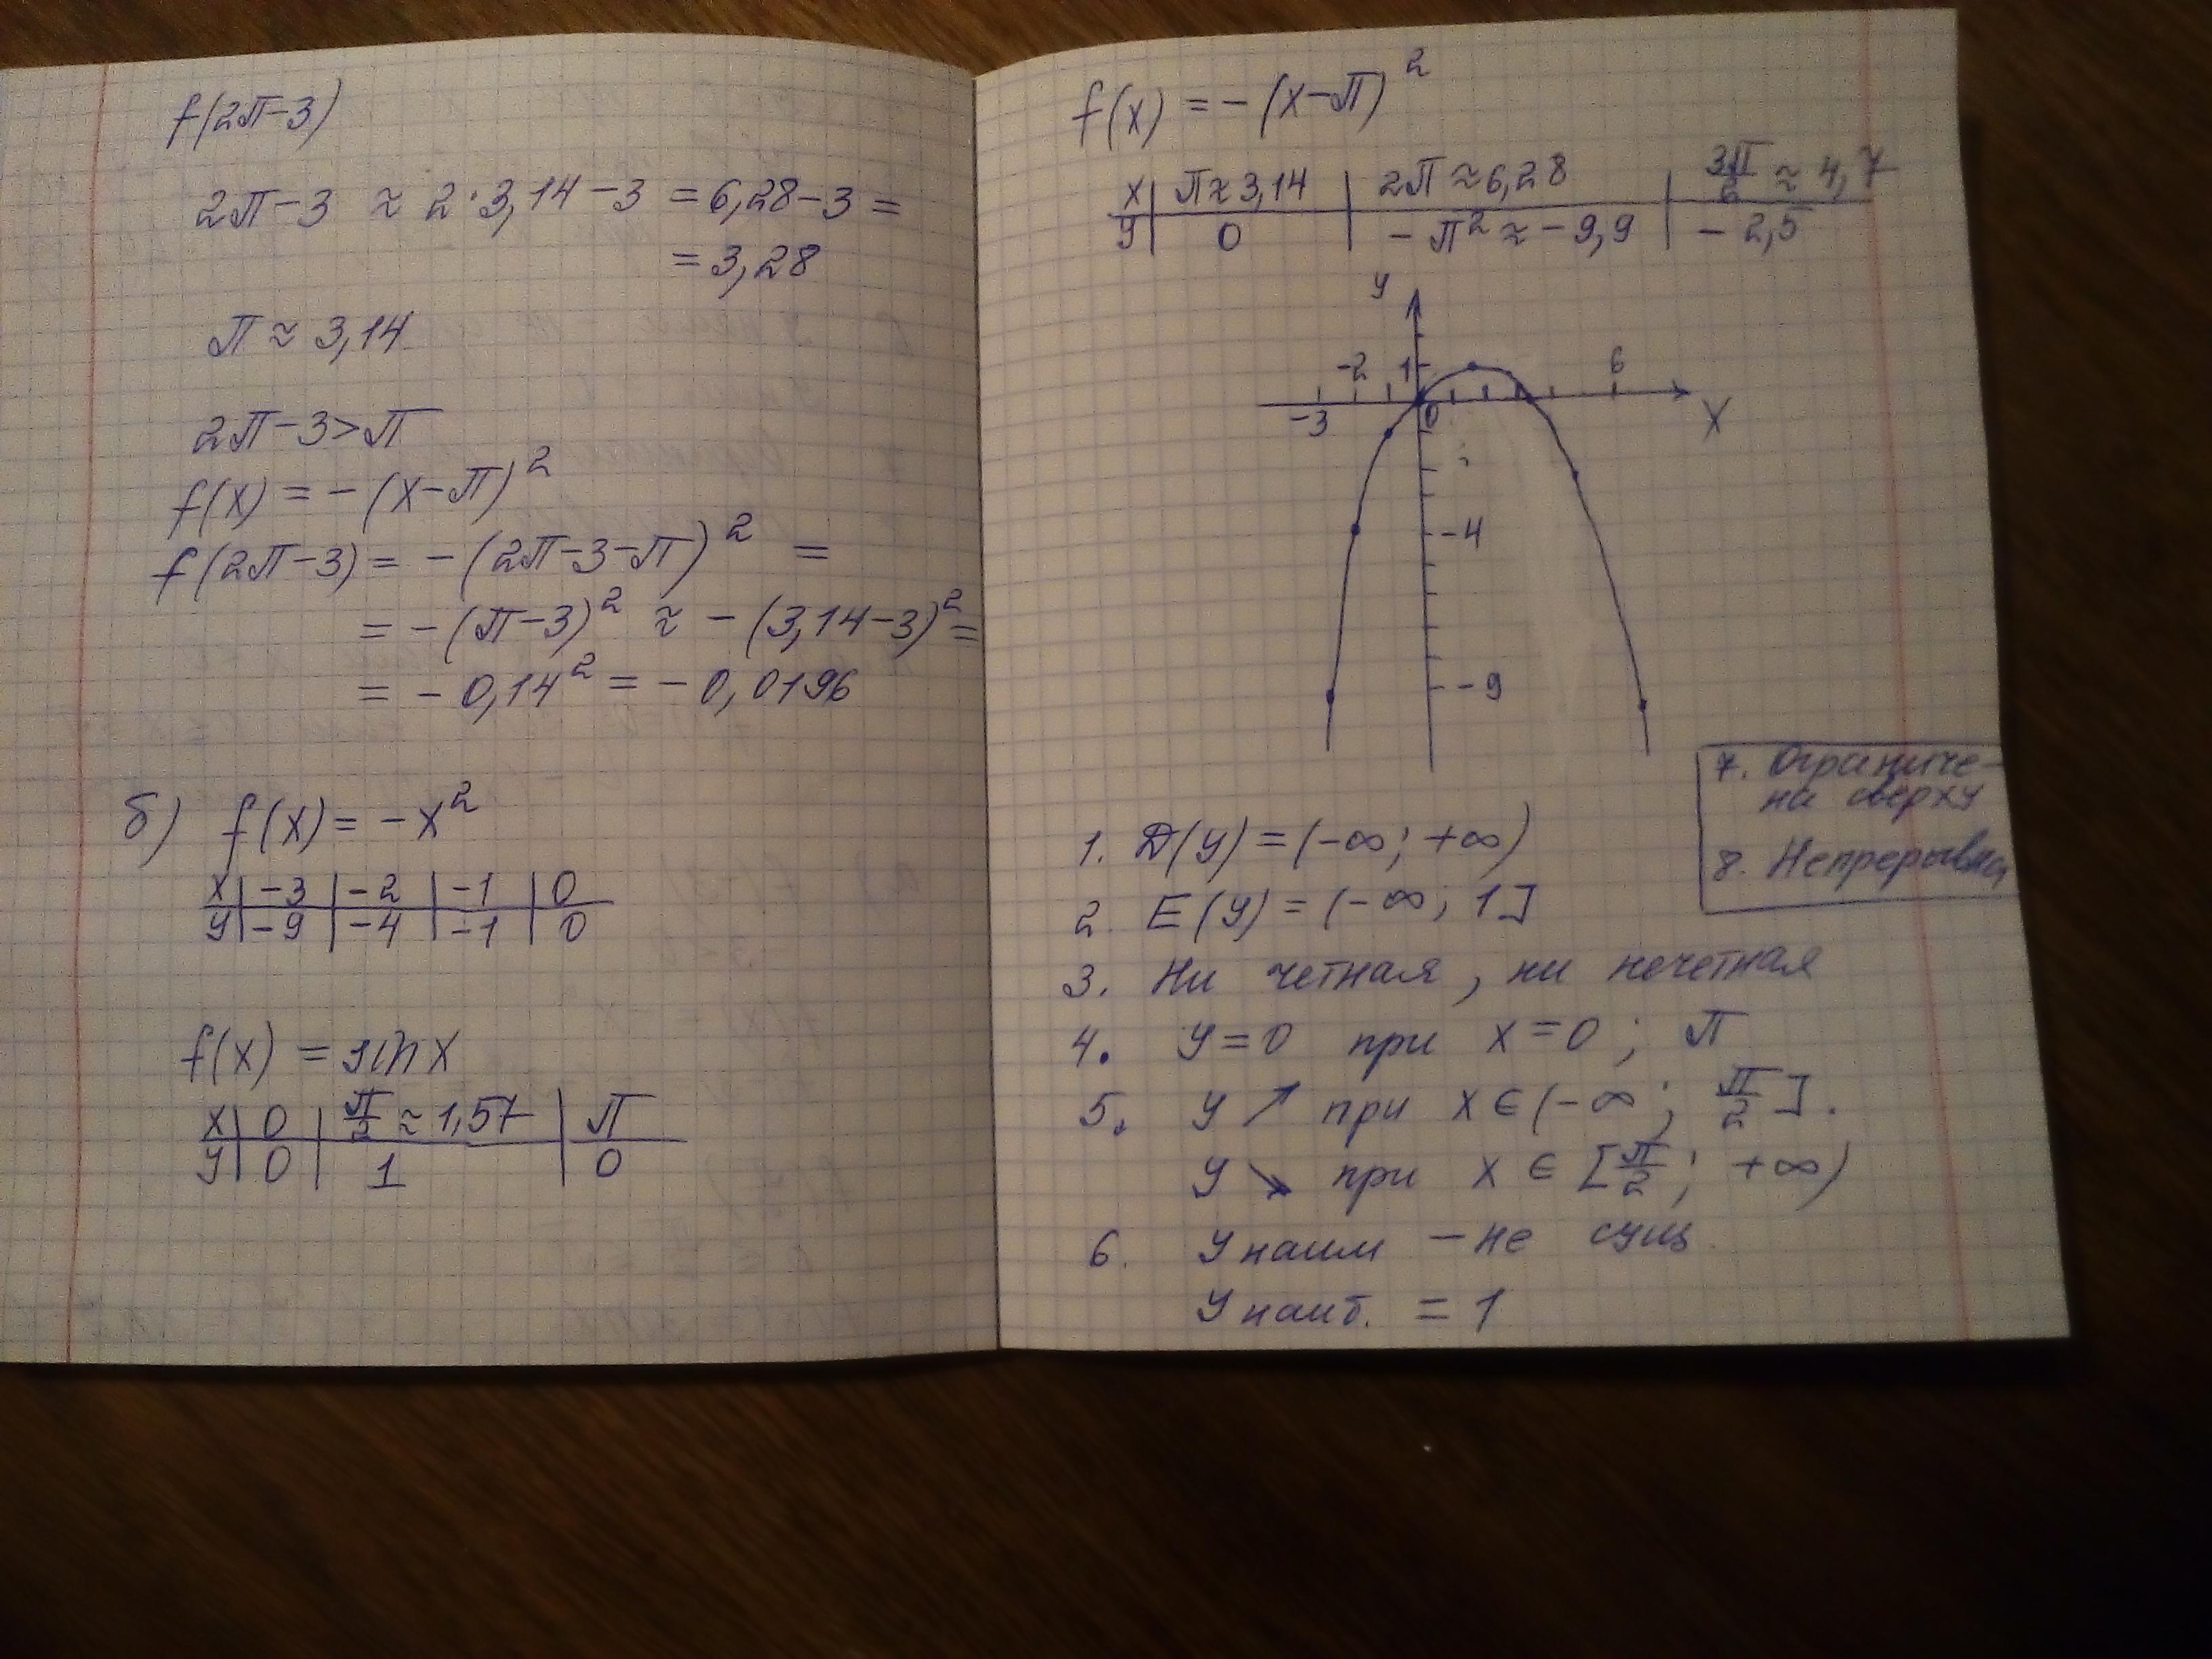 f(2π-3)
2π-3 ≈ 2·3,14-3 = 6,28-3 =
= 3,28
π ≈ 3,14
2π-3>π
f(x) = -(x-π)²
f(2π-3) = -(2π-3-π)² =
= -(π-3)² ≈ -(3,14-3)² =
= -0,14² = -0,0196
б) f(x) = -x²
x | -3 | -2 | -1 | 0
y | -9 | -4 | -1 | 0
f(x) = sin x
x | 0 | π/2 ≈ 1,57 | π
y | 0 | 1 | 0
f(x) = -(x-π)²
x | π ≈ 3,14 | 2π ≈ 6,28 | 3π/2 ≈ 4,7
y | 0 | -π² ≈ -9,9 | -2,5
y
-2 1 6
-3 0 x
-4
-9
7. Ограниче-
на сверху
8. Непрерывна
1. D(y) = (-∞; +∞)
2. E(y) = (-∞; 1]
3. Ни четная, ни нечетная
4. y=0 при x=0; π
5. y ↗ при x ∈ (-∞; π/2].
y ↘ при x ∈ [π/2; +∞)
6. y наим - не сущ.
y наиб. = 1